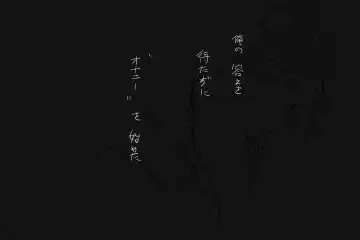 俺の 答えを
待たずに
“オナニー”を 始めた